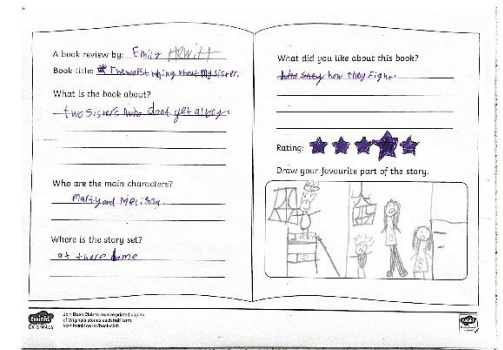 A book review by: Emily Hewitt
Book title: The worst thing about my sister.
What is the book about?
two sisters who dont get along.
Who are the main characters?
Marty and Melissa.
Where is the story set?
at there home
What did you like about this book?
how they fight.
Rating:
Draw your favourite part of the story.
twinkl
ORIGINALS